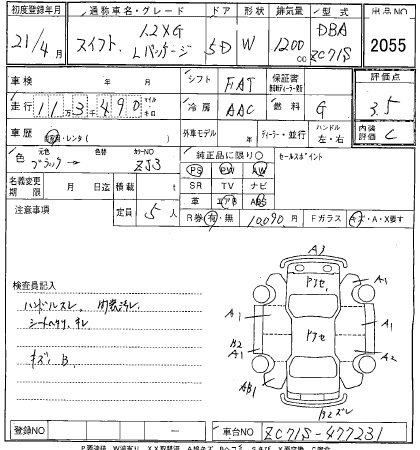 初度登録年月 通称車名・グレード ドア 形状 排気量 型式 出品NO
21/4月 スイフト 1.2XG Lパッケージ 5D W 1200cc DBA ZC71S 2055
車検 年 月 シフト FAT 保証書 評価点
走行 11万3千490 マイル キロ 冷房 AAC 燃料 G 3.5
車歴 自家用・レンタ( ) 外車モデル 年 ディーラー・並行 ハンドル 左・右 内装評価 C
色 元色 ブラック→ 色替 カラーNO ZJ3 純正品に限り○ セールスポイント
PS PW AW
名義変更期限 月 日迄 積載 t SR TV ナビ
革 エアB ABS
注意事項 定員 5人 R券 有・無 10,090円 Fガラス キズ・A・X要す
検査員記入
ハンドルスレ、内装汚レ、
シートヘタリ、キレ
キズ、B
A3
アセ
A1 A1
A1 アセ A1
B2 A1 A2
AB1 A1
B2ズレ
登録NO 車台NO ZC71S-477231